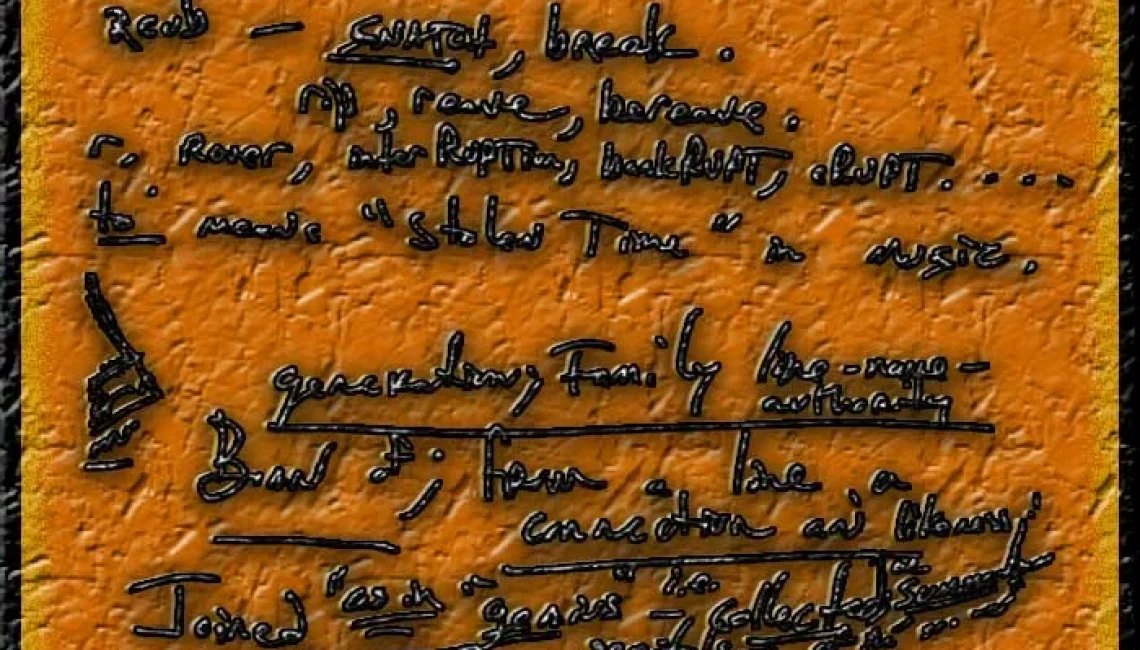 Reub — SNATCH, break.
rip, reave, bereave.
r, Rover, interRUPTion, bankRUPT, eRUPT. . . . .
to means "Stolen Time" in music.
generation, Family line-name-
authority
Born of; from a line, a
connection and
Joined "as in" "genius" - i.e. collected